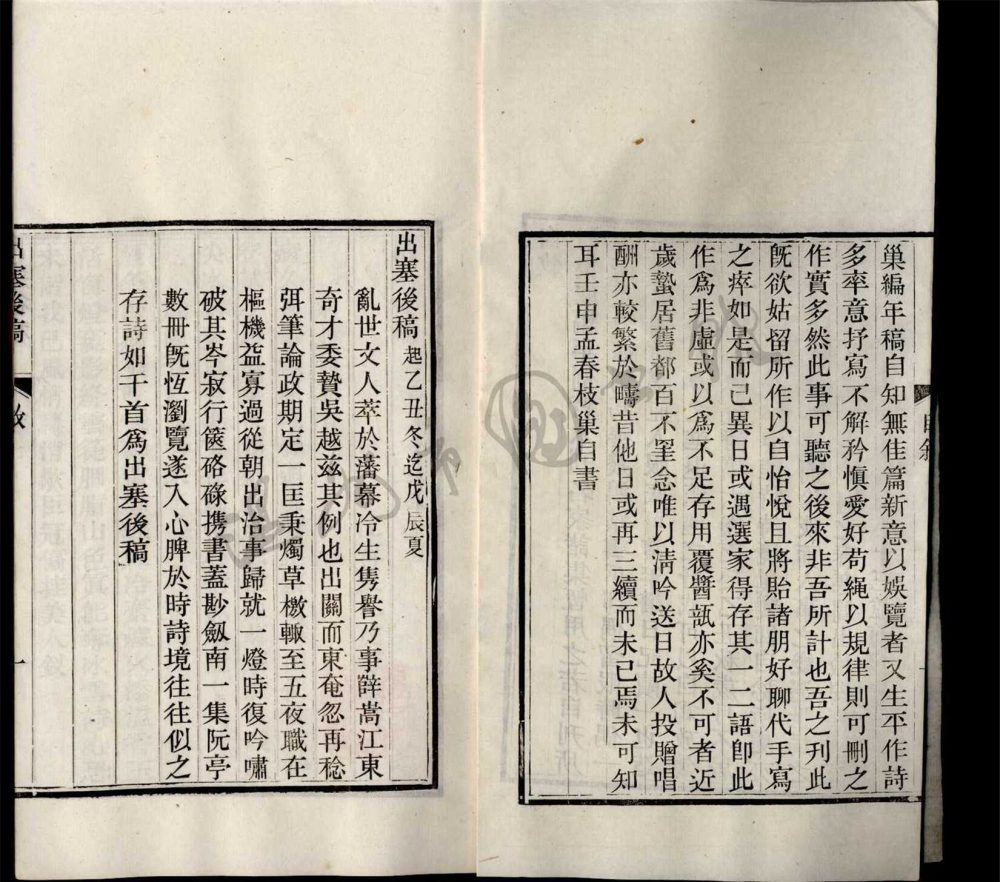 巢編年稿自知無佳篇新意以娛覽者又生平作詩
多率意抒寫不解矜慎愛好苟繩以規律則可刪之
作實多然此事可聽之後來非吾所計也吾之刊此
既欲姑留所作以自怡悅且將貽諸朋好聊代手寫
之瘁如是而已異日或遇選家得存其一二語卽此
作爲非虛或以爲不足存用覆醬瓿亦奚不可者近
歲蟄居舊都百不罣念唯以淸吟送日故人投贈唱
酬亦較繁於疇昔他日或再三續而未已焉未可知
耳壬申孟春枝巢自書
自敘
出塞後稿 起乙丑冬迄戊辰夏
亂世文人萃於藩幕冷生雋譽乃事薛嵩江東
奇才委贄吳越茲其例也出關而東奄忽再稔
弭筆論政期定一匡秉燭草檄輒至五夜職在
樞機益寡過從朝出治事歸就一燈時復吟嘯
破其岑寂行篋硌碌携書蓋尠劔南一集阮亭
數冊旣恆瀏覽遂入心脾於時詩境往往似之
存詩如干首爲出塞後稿
出塞後稿
一